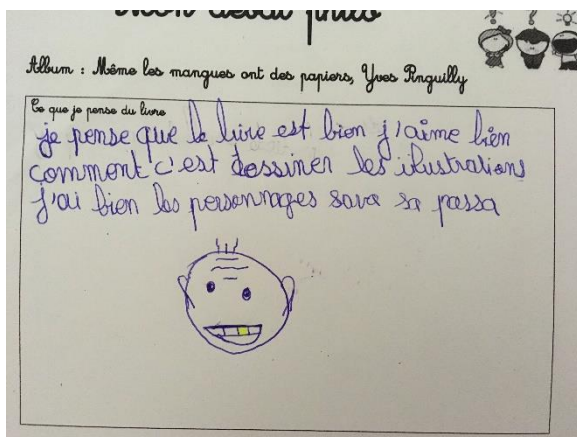 Mon devoir philo
Album : Même les mangues ont des papiers, Yves Pinguilly
Ce que je pense du livre
je pense que le livre est bien j'aime bien
comment c'est dessiner les ilustrations
j'ai bien les personnages sava sa passa